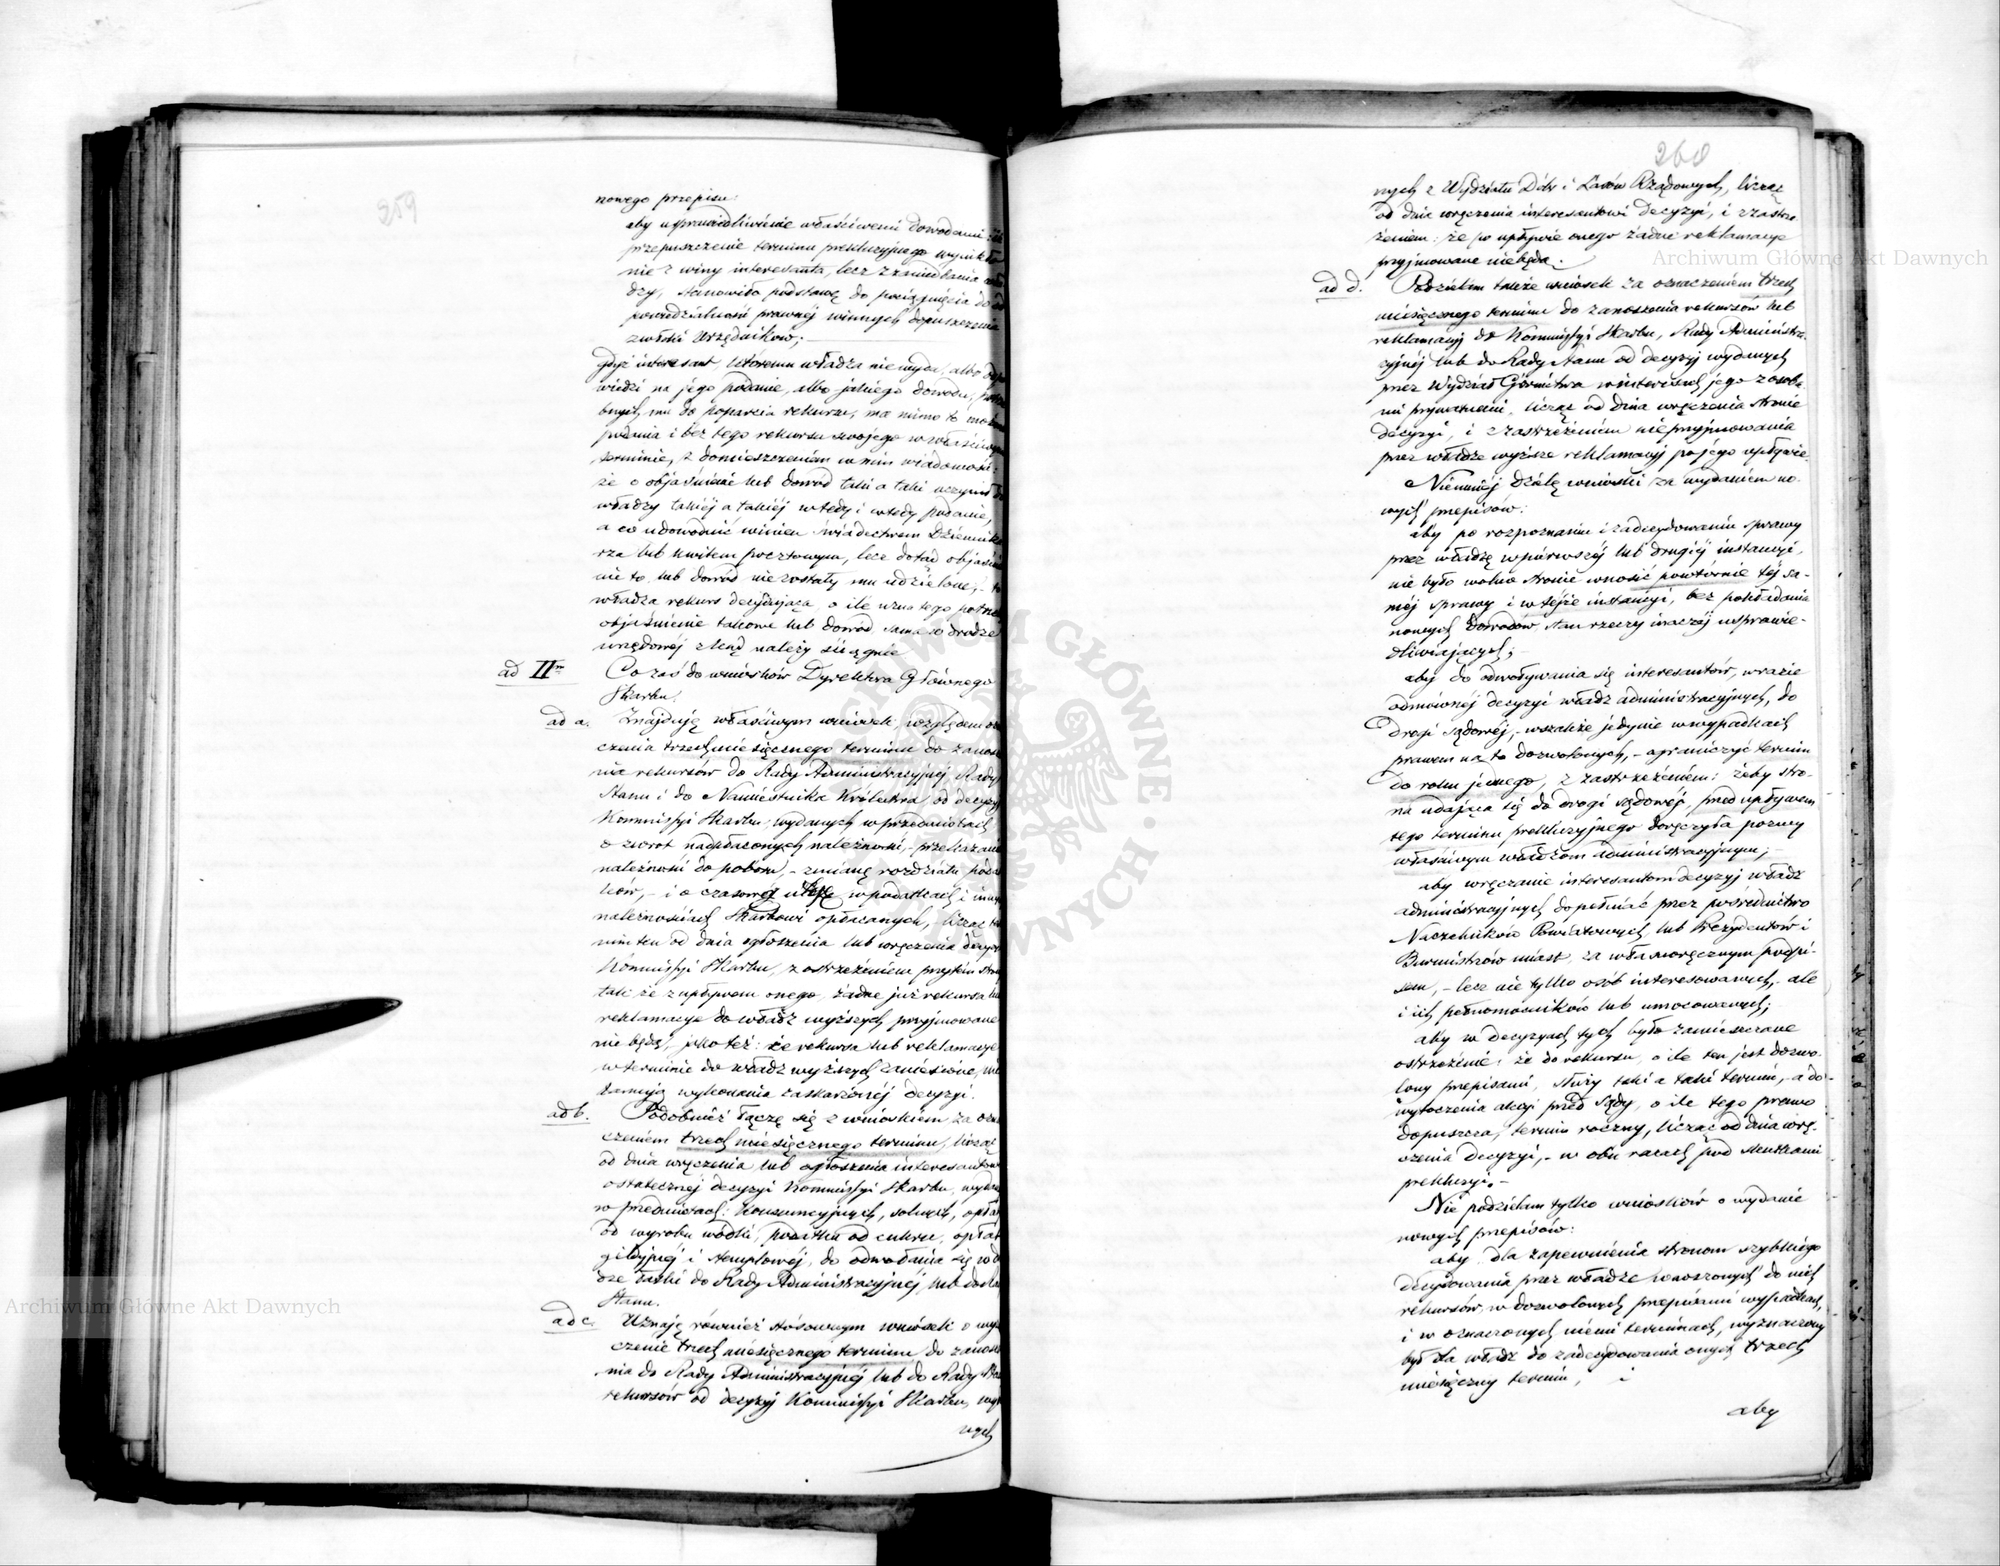 259
nowego przepisu:
aby usprawiedliwienie właściwemi dowodami: iż
przepuszczenie terminu prekluzyjnego wynikło
nie z winy interesanta, lecz z zaniedbania wła
dzy, stanowiło podstawę do pociągnięcia do od
powiedzialności prawnej winnych dopuszczenia
zwłoki Urzędników; —
gdyż interesant, któremu władza nie wyda, albo odpo
wiedzi na jego podanie, albo jakiego dowodu, potrze
bnych mu do poparcia rekursu, ma mimo to możność
podania i bez tego rekursu swojego w właściwym
terminie, z domieszczeniem w nim wiadomości:
że o objaśnienie lub dowód taki a taki uczynił do
władzy takiéj a takiéj wtedy i wtedy podanie,
a co udowodnić winien świadectwem Dziennika
rza lub kwitem pocztowym, lecz dotąd objaśnie
nie to, lub dowód nie zostały mu udzielone; — to
władza rekurs decydująca, o ile uzna tego potrze
objaśnienie takowe lub dowód sama w drodze
urzędowéj zkąd należy ściągnie
ad II. Co zaś do wniosków Dyrektora Głównego
Skarbu.
ad a. Znajduję właściwym wniosek, względem ozna
czenia trzechmiesięcznego terminu do zanosze
nia rekursów do Rady Administracyjnéj Rady
Stanu i do Namiestnika Królestwa od decyzyj
Kommissyi Skarbu, wydanych w przedmiotach
o zwrot nadpłaconych należności, — przekazanie
należności do poboru, — zmianę rozdziału podat
ków, — i o czasową ulgę w podatkach i innych
należnościach Skarbowi opłacanych, — licząc ter
min ten od dnia ogłoszenia lub wręczenia decyzyi
Kommissyi Skarbu, z ostrzeżeniem przytém stron
tak że z upływem onego, żadne już rekursa lub
reklamacye do władz wyższych przyjmowane
nie będą, — jako też: że rekursa lub reklamacye
w terminie do władz wyższych zaniesione, nie
tamują wykonania zaskarżonéj decyzyi.
ad b. Podobnież łączę się z wnioskiem, za ozna
czeniem trzech miesięcznego terminu, licząc
od dnia wręczenia lub ogłoszenia interesantom
ostatecznéj decyzyi Kommissyi Skarbu, wydanéj
w przedmiotach: Konsumcyjnych, solnych, opłat
od wyrobu wódki, podatku od cukru, opłat
gildyjnéj i stemplowéj, do odwołania się w dro
dze łaski do Rady Administracyjnéj, lub do Rady
Stanu.
ad c. Uznaję również stosownym wniosek o wyzna
czenie trzech miesięcznego terminu do zanosze
nia do Rady Administracyjnéj lub do Rady Stanu
rekursów od decyzyj Kommissyi Skarbu, wyda
nych
260
nych z Wydziału Dóbr i Lasów Rządowych, licząc
od dnia wręczenia interesantowi decyzyi, i z zastrze
żeniem: że po upływie onego żadne reklamacye
przyjmowane nie będą.
ad d. Podzielam także wniosek za oznaczeniem trzech
miesięcznego terminu do zanoszenia rekursów lub
reklamacyj do Kommissyi Skarbu, Rady Administra
cyjnéj lub do Rady Stanu od decyzyj wydanych
przez Wydział Górnictwa w interesach jego z osoba
mi prywatnemi, licząc od dnia wręczenia stronie
decyzyi, i z zastrzeżeniem nieprzyjmowania
przez władze wyższe reklamacyj po jego upływie.
Niemniéj dzielę wnioski za wydaniem no-
wych przepisów:
aby po rozpoznaniu i zadecydowaniu sprawy
przez władzę w pierwszéj lub drugiéj instancyi,
nie było wolno stronie wnosić powtórnie téj sa-
méj sprawy i w téjże instancyi, bez pokładania
nowych dowodów stan rzeczy inaczéj usprawie-
dliwiających; —
aby do odwoływania się interesantów, w razie
odmównéj decyzyi władz administracyjnych, do
drogi sądowéj, — wszakże jedynie w wypadkach
prawem na to dozwolonych, — ograniczyć termin
do roku jednego, z zastrzeżeniem: żeby stro-
na udająca się do drogi sądowéj, przed upływem
tego terminu prekluzyjnego doręczyła pozwy
właściwym władzom administracyjnym; —
aby wręczanie interesantom decyzyj władz
administracyjnych dopełniać przez pośrednictwo
Naczelników Powiatowych lub Prezydentów i
Burmistrzów miast, za własnoręcznym podpi-
sem, — lecz nie tylko osób interesowanych, — ale
i ich pełnomocników lub umocowanych;
aby w decyzyach tych było zamieszczane
ostrzeżenie: że do rekursu, o ile ten jest dozwo-
lony przepisami, służy taki a taki termin, — a do
wytoczenia akcyi przed Sądy, o ile tego prawo
dopuszcza, termin roczny, licząc od dnia wrę-
czenia decyzyi, — w obu razach pod skutkami
prekluzyi. —
Nie podzielam tylko wniosków o wydanie
nowych przepisów:
aby dla zapewnienia stronom szybkiego
decydowania przez władze wnoszonych do nich
rekursów, w dozwolonych przepisami wypadkach,
i w oznaczonych niemi terminach, wyznaczony
był dla władz do zadecydowania onych trzech
miesięczny termin, i
aby
Archiwum Główne Akt Dawnych
Archiwum Główne Akt Dawnych
ARCHIWUM GŁÓWNE AKT DAWNYCH